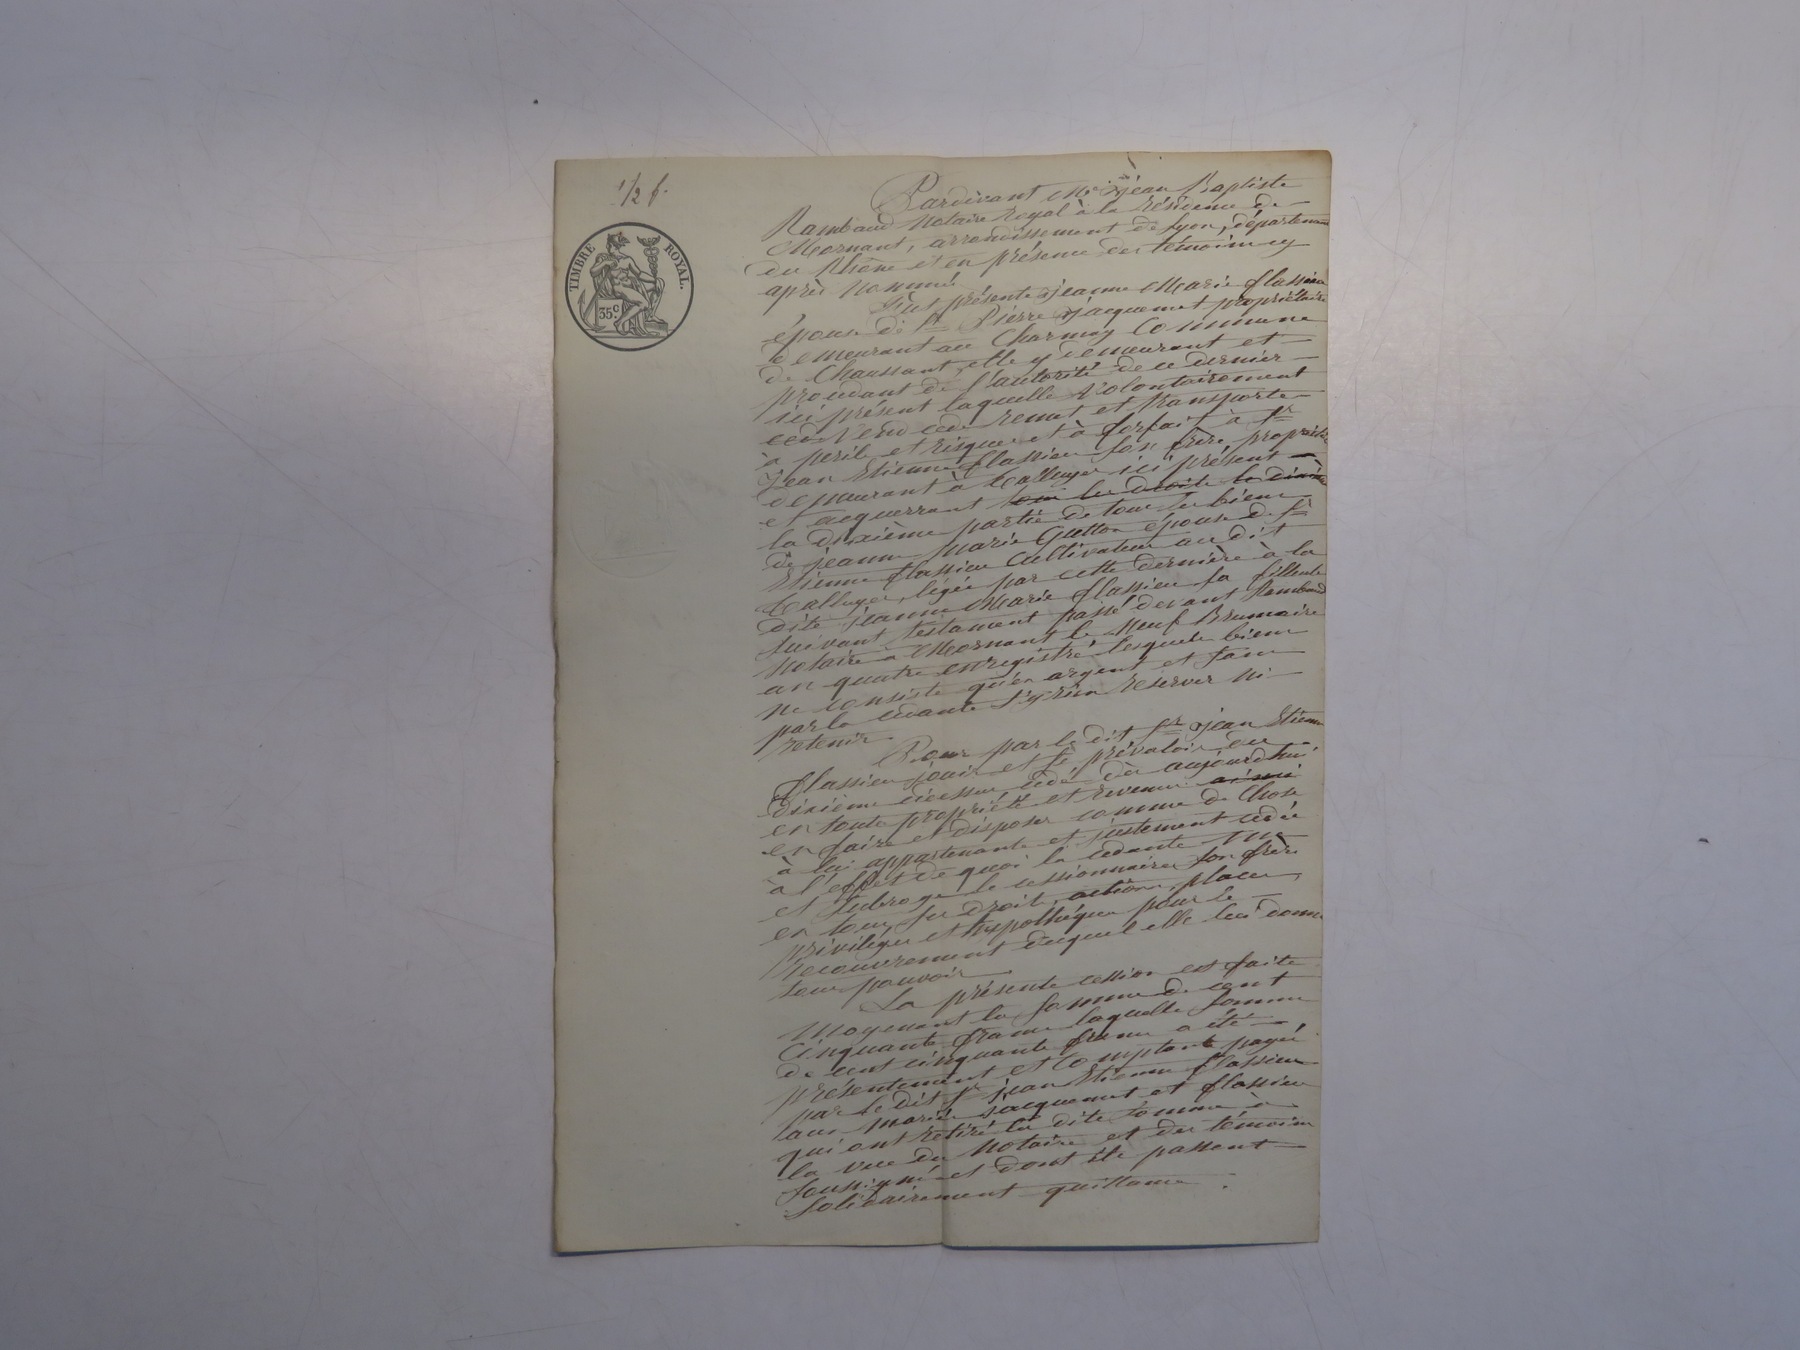 1/2 f.
TIMBRE ROYAL.
35 c.
Pardevant Me Jean Baptiste
Rambaud Notaire Royal à la résidence de
Mornant, arrondissement de Lyon, département
du Rhône et en présence des témoins cy
après nommés
Fut présente Jeanne Marie flassieu
épouse de Sr Pierre Jacquemet propriétaire
demeurant au Charmay Commune
de Chaussant, elle y demeurant et
procédant de l'autorité de ce dernier
ici présent laquelle volontairement
vend cède remet et transporte
à perils et risques et à forfait à Sr
Jean Etienne flassieu son frère, propriétaire
demeurant à talluyer ici présent
et acquerrant tous les droits la dixième
la dixième partie de tous les biens
de jeanne Marie Gutton épouse de Sr
Etienne flassieu Cultivateur au dit
talluyer, légée par cette dernière à la
dite Jeanne Marie flassieu sa filleule
suivant testament passé devant Rambaud
Notaire à Mornant le Neuf Brumaire
an quatre enregistré lesquels biens
ne consiste qu'en argent et sans
par la cédante s'y rien réserver ni
retenir
Pour par le dit Sr jean Etienne
flassieu jouir et se prévaloir du
dixième cédessus cédé dès aujourdhui
en toute propriété et revenus
en faire et disposer comme de Chose
à lui appartenante et justement cédée
à l'effet de quoi la cédante met
et subroge le cessionnaire son frère
en tous ses droits, actions, places,
privilèges et hypothéques pour le
recouvrement duquel elle lui donne
tous pouvoirs
La présente cession est faite
moyenant la somme de cent
Cinquante francs laquelle somme
de cent cinquante francs a été
présentement et Comptant payée
par le dit Sr jean Etienne flassieu
aux mariés Jacquemet et flassieu
qui ont retiré la dite somme à
la vue du Notaire et des témoins
soussignés et dont ils passent
solidairement quittance.